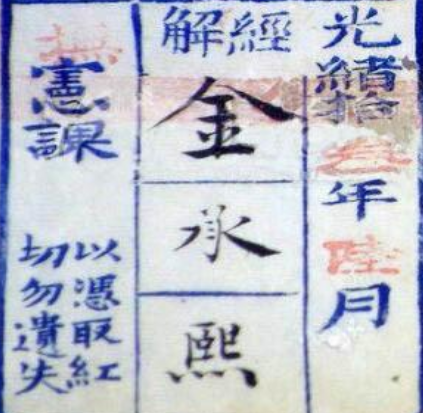 光緒拾叁年陸月
經解
金承熙
撫憲課
以憑取紅
切勿遺失